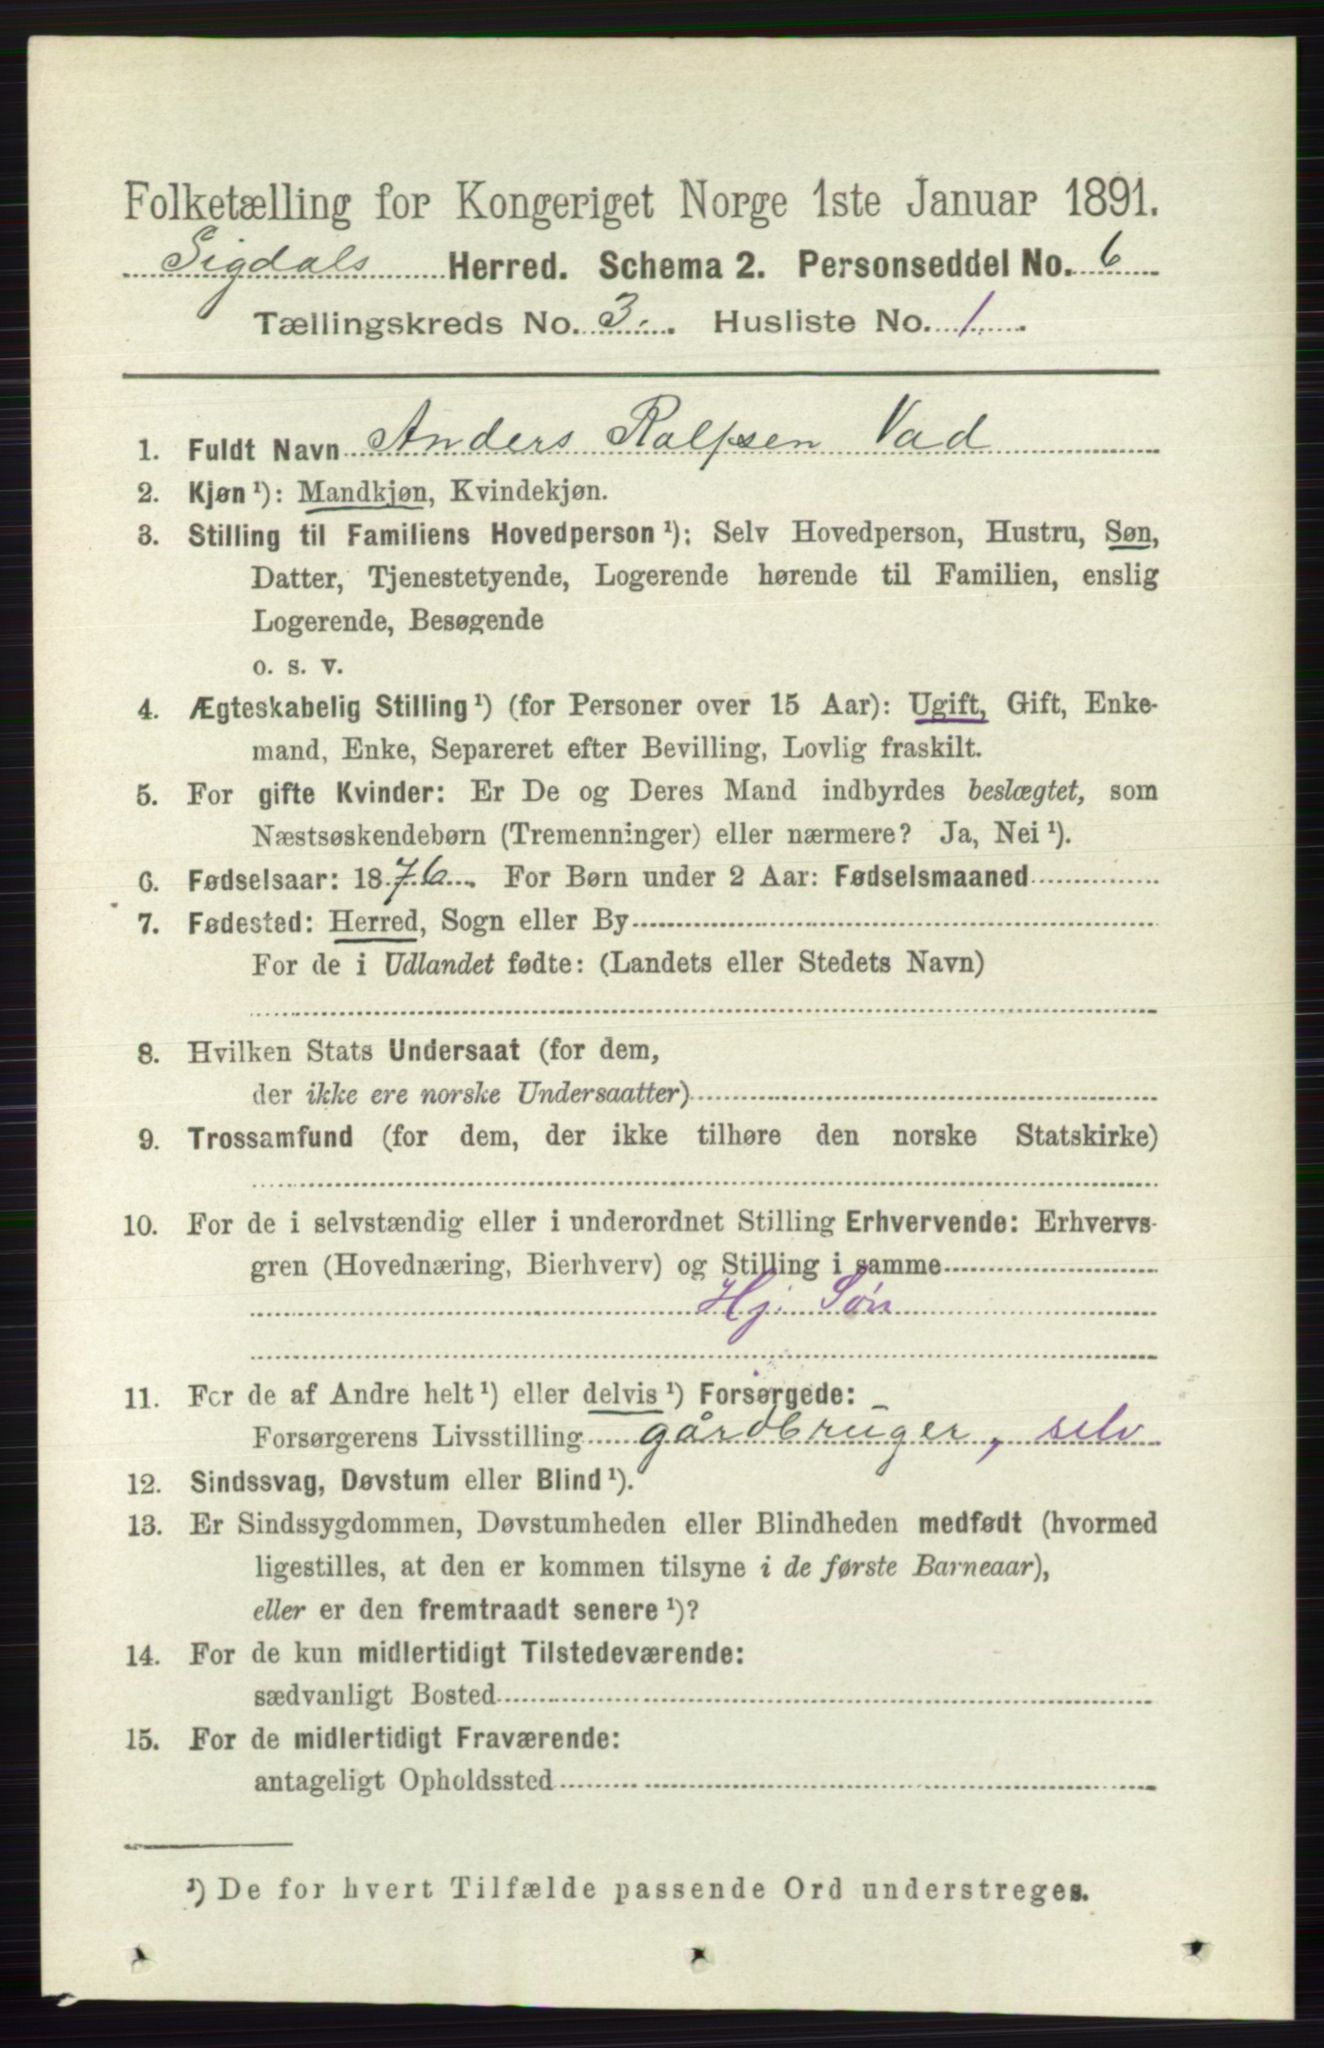 Folketælling for Kongeriget Norge 1ste Januar 1891.
Sigdals Herred. Schema 2. Personseddel No. 6
Tællingskreds No. 3. Husliste No. 1.
1. Fuldt Navn Anders Rolfsen Vad
2. Kjøn¹): Mandkjøn, Kvindekjøn.
3. Stilling til Familiens Hovedperson¹): Selv Hovedperson, Hustru, Søn,
Datter, Tjenestetyende, Logerende hørende til Familien, enslig
Logerende, Besøgende
o. s. v.
4. Ægteskabelig Stilling¹) (for Personer over 15 Aar): Ugift, Gift, Enke-
mand, Enke, Separeret efter Bevilling, Lovlig fraskilt.
5. For gifte Kvinder: Er De og Deres Mand indbyrdes beslægtet, som
Næstsøskendebørn (Tremenninger) eller nærmere? Ja, Nei¹).
6. Fødselsaar: 1876. For Børn under 2 Aar: Fødselsmaaned
7. Fødested: Herred, Sogn eller By
For de i Udlandet fødte: (Landets eller Stedets Navn)
8. Hvilken Stats Undersaat (for dem,
der ikke ere norske Undersaatter)
9. Trossamfund (for dem, der ikke tilhøre den norske Statskirke)
10. For de i selvstændig eller i underordnet Stilling Erhvervende: Erhvervs-
gren (Hovednæring, Bierhverv) og Stilling i samme
Hj. Søn
11. For de af Andre helt¹) eller delvis¹) Forsørgede:
Forsørgerens Livsstilling gårdbruger, selv
12. Sindssvag, Døvstum eller Blind¹).
13. Er Sindssygdommen, Døvstumheden eller Blindheden medfødt (hvormed
ligestilles, at den er kommen tilsyne i de første Barneaar),
eller er den fremtraadt senere¹)?
14. For de kun midlertidigt Tilstedeværende:
sædvanligt Bosted
15. For de midlertidigt Fraværende:
antageligt Opholdssted
¹) De for hvert Tilfælde passende Ord understreges.